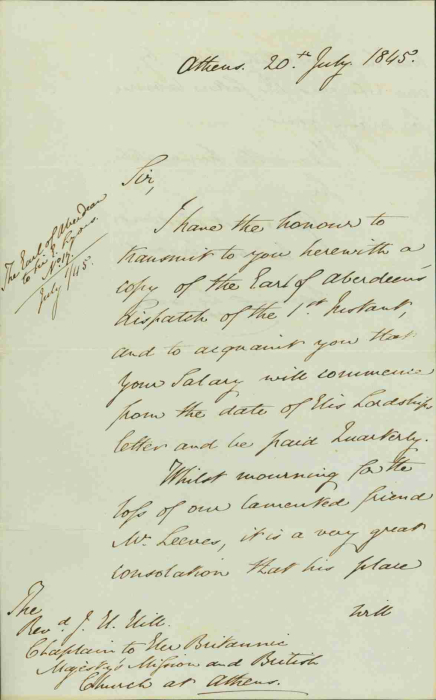 Athens. 20th July. 1845.
Sir,
The Earl of Aberdeen
to Sir E. Lyons.
No 17.
July 1/45.
I have the honour to
transmit to you herewith a
copy of the Earl of Aberdeen's
Dispatch of the 1st Instant,
and to acquaint you that
your Salary will commence
from the date of His Lordship's
letter and be paid Quarterly.
Whilst mourning for the
loss of our lamented friend
Mr. Leeves, it is a very great
consolation that his place
will
The
Revd J. H. Hill.
Chaplain to Her Britannic
Majesty's Mission and British
Church at Athens.